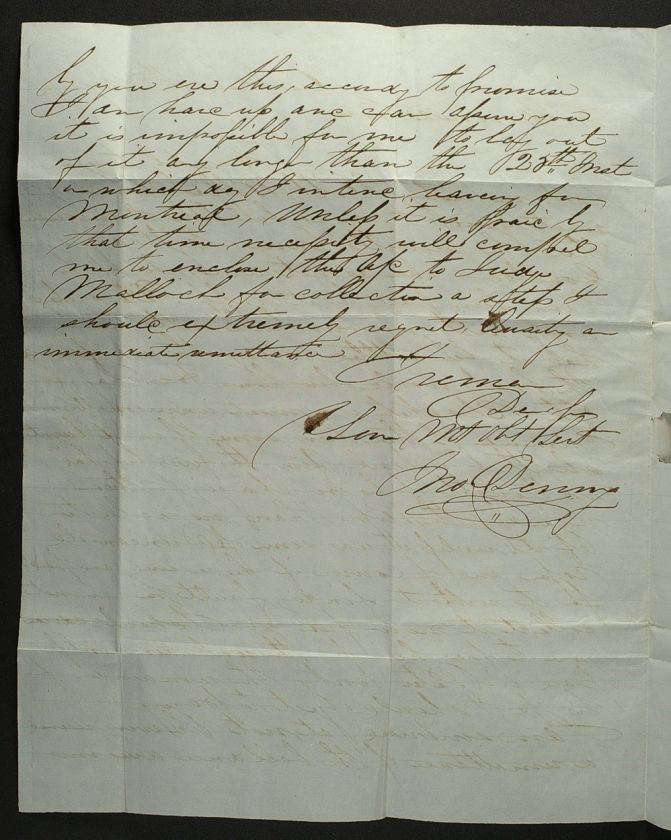 by you ere this, accordg to promise
I am hard up and can assure you
it is impossible for me to lay out
of it any longer than the 25th Inst
on which day I intend leaving for
Montreal, Unless it is paid by
that time necessity will compel
me to enclose this a/c to Judge
Malloch for collection a step I
should extremely regret Awaiting an
immediate remittance
I remain
Dear Sir
Your Mt Obt Sert
Jno Denny